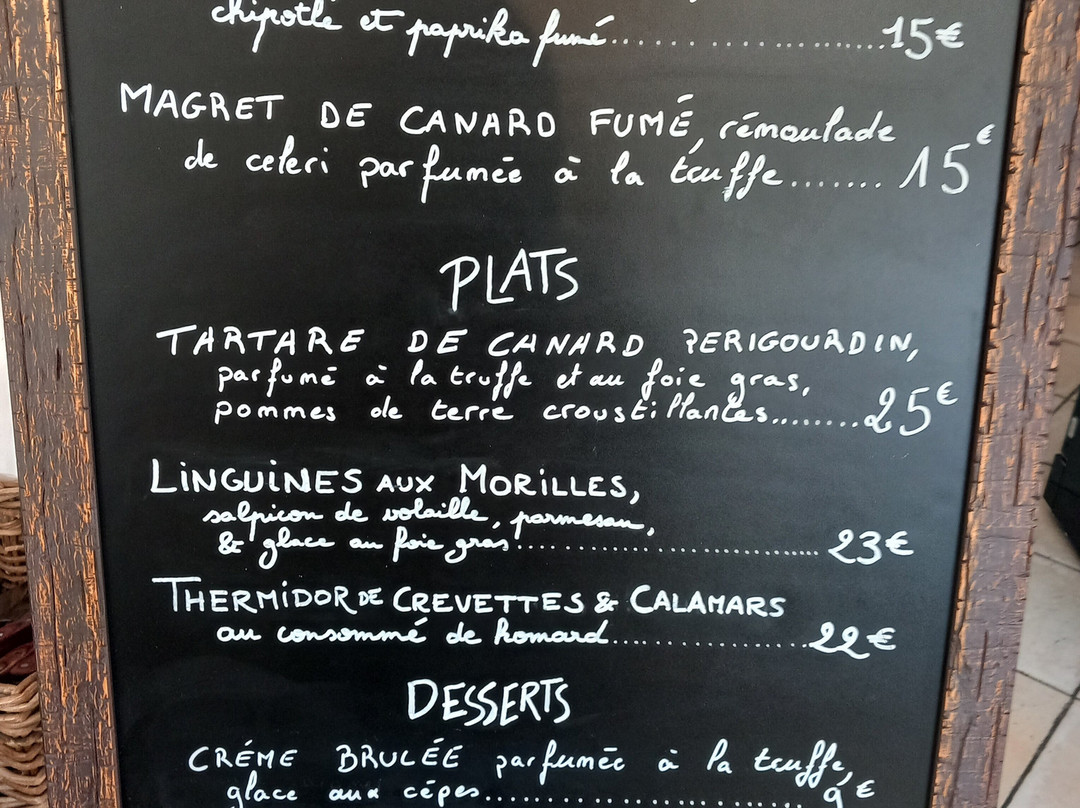 chipotle et paprika fumé...................15€
MAGRET DE CANARD FUMÉ, rémoulade
de celeri parfumée à la truffe....... 15€
PLATS
TARTARE DE CANARD PERIGOURDIN,
parfumé à la truffe et au foie gras,
pommes de terre croustillantes.........25€
LINGUINES AUX MORILLES,
salpicon de volaille, parmesan,
& glace au foie gras............................... 23€
THERMIDOR DE CREVETTES & CALAMARS
au consommé de homard.....................22€
DESSERTS
CRÉME BRULÉE parfumée à la truffe,
glace aux cèpes.............................. 9€